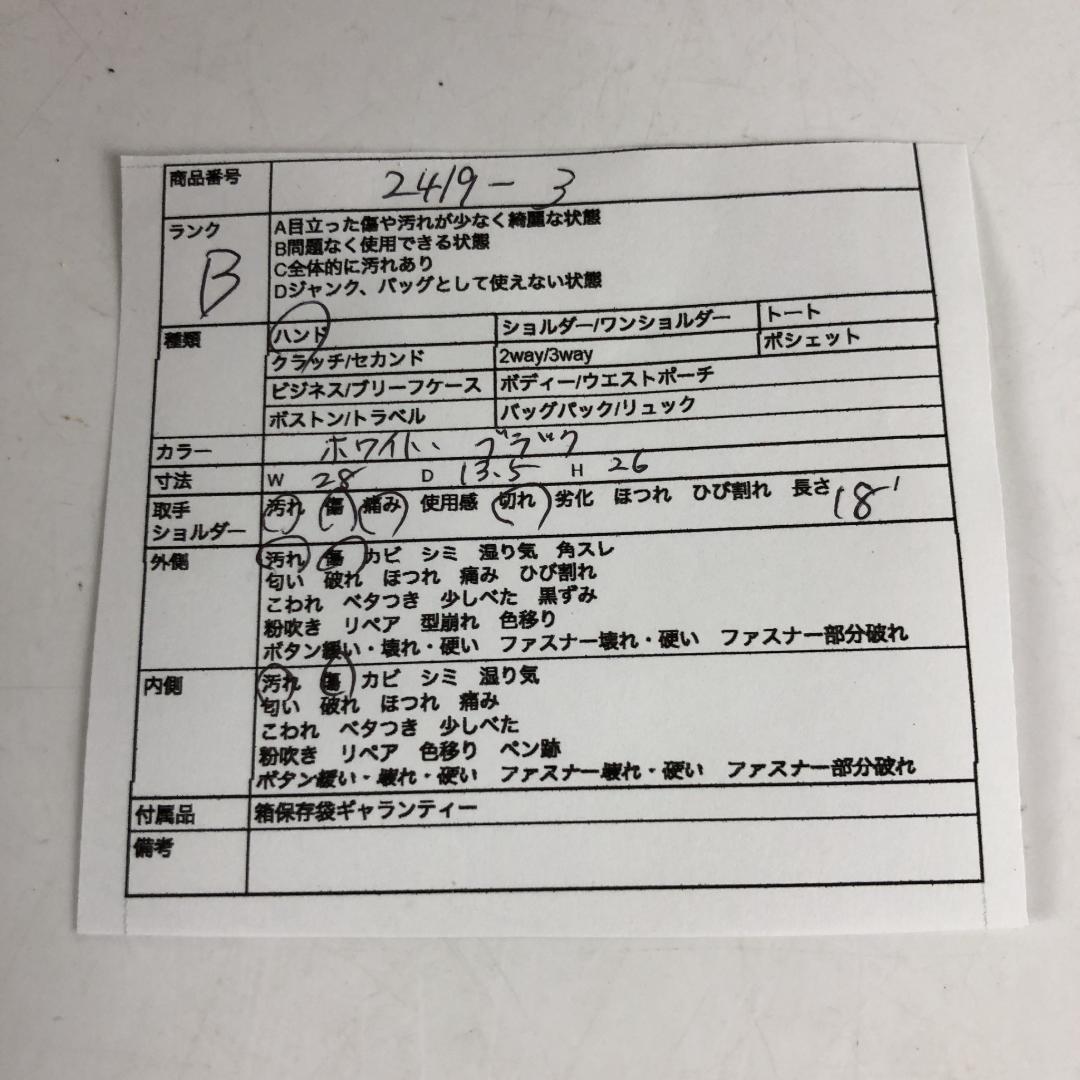 商品番号 2419-3
ランク B
A目立った傷や汚れが少なく綺麗な状態
B問題なく使用できる状態
C全体的に汚れあり
Dジャンク、バッグとして使えない状態
種類 ハンド ショルダー/ワンショルダー トート
クラッチ/セカンド 2way/3way ポシェット
ビジネス/ブリーフケース ボディー/ウエストポーチ
ボストン/トラベル バッグパック/リュック
カラー ホワイト、ブラック
寸法 W 28 D 13.5 H 26
取手 汚れ 傷 痛み 使用感 切れ 劣化 ほつれ ひび割れ 長さ 18
ショルダー
外側 汚れ 傷 カビ シミ 湿り気 角スレ
匂い 破れ ほつれ 痛み ひび割れ
こわれ ベタつき 少しべた 黒ずみ
粉吹き リペア 型崩れ 色移り
ボタン緩い・壊れ・硬い ファスナー壊れ・硬い ファスナー部分破れ
内側 汚れ 傷 カビ シミ 湿り気
匂い 破れ ほつれ 痛み
こわれ ベタつき 少しべた
粉吹き リペア 色移り ペン跡
ボタン緩い・壊れ・硬い ファスナー壊れ・硬い ファスナー部分破れ
付属品 箱保存袋ギャランティー
備考